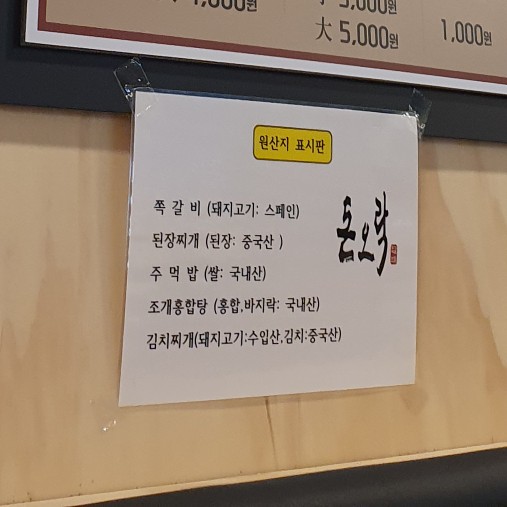 1,000원
小 3,000원
大 5,000원 1,000원
원산지 표시판
쪽 갈 비 (돼지고기: 스페인)
된장찌개 (된장: 중국산 )
주 먹 밥 (쌀: 국내산)
조개홍합탕 (홍합,바지락: 국내산)
김치찌개(돼지고기:수입산,김치:중국산)
돈오락